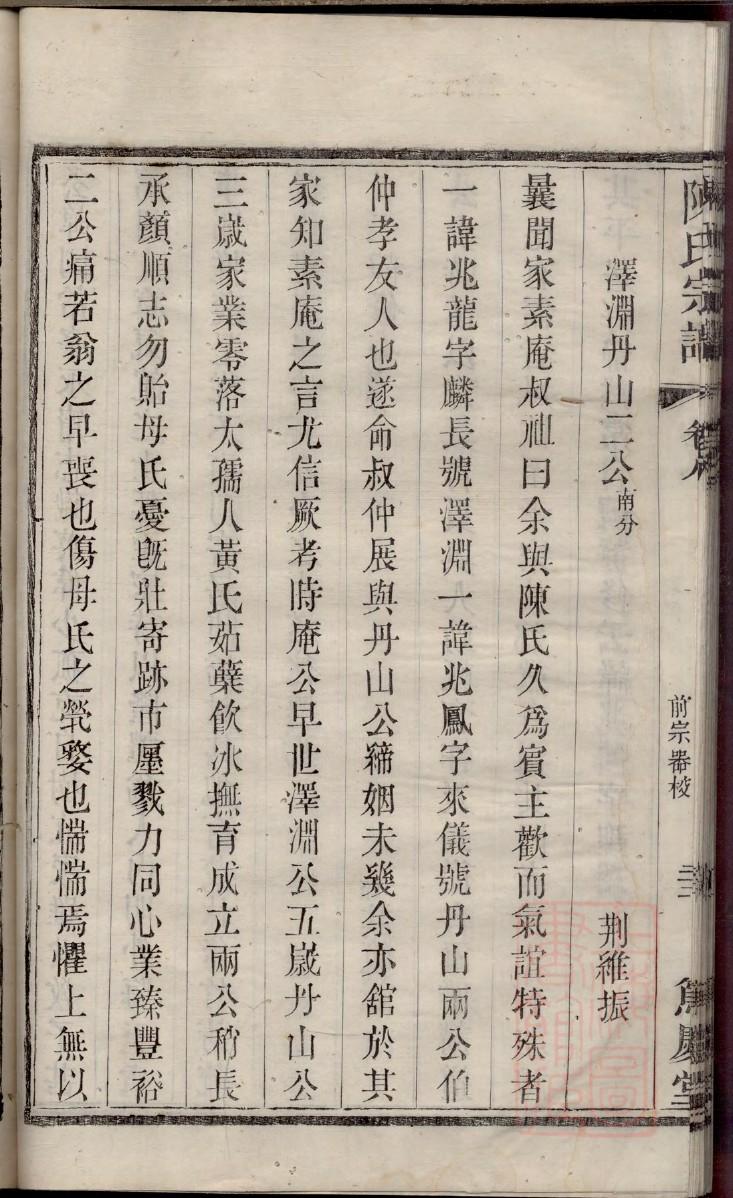 陳氏宗譜
前宗器棱
澤淵丹山二公南分
荆維振
曩聞家素庵叔祉曰余與陳氏久爲賓主歡而氣誼特殊者
一諱兆龍字麟長號澤淵一諱兆鳳字來儀號丹山兩公伯
仲孝友人也遂命叔仲展與丹山公締姻未幾余亦舘於其
家知素庵之言尤信厥考時庵公早世澤淵公五嵗丹山公
三嵗家業零落太孺人黃氏茹蘖飲冰撫育成立兩公稍長
承顏順志勿貽母氏憂旣壯寄跡市廛戮力同心業臻豐裕
二公痛若翁之早喪也傷母氏之煢嫠也惴惴焉懼上無以